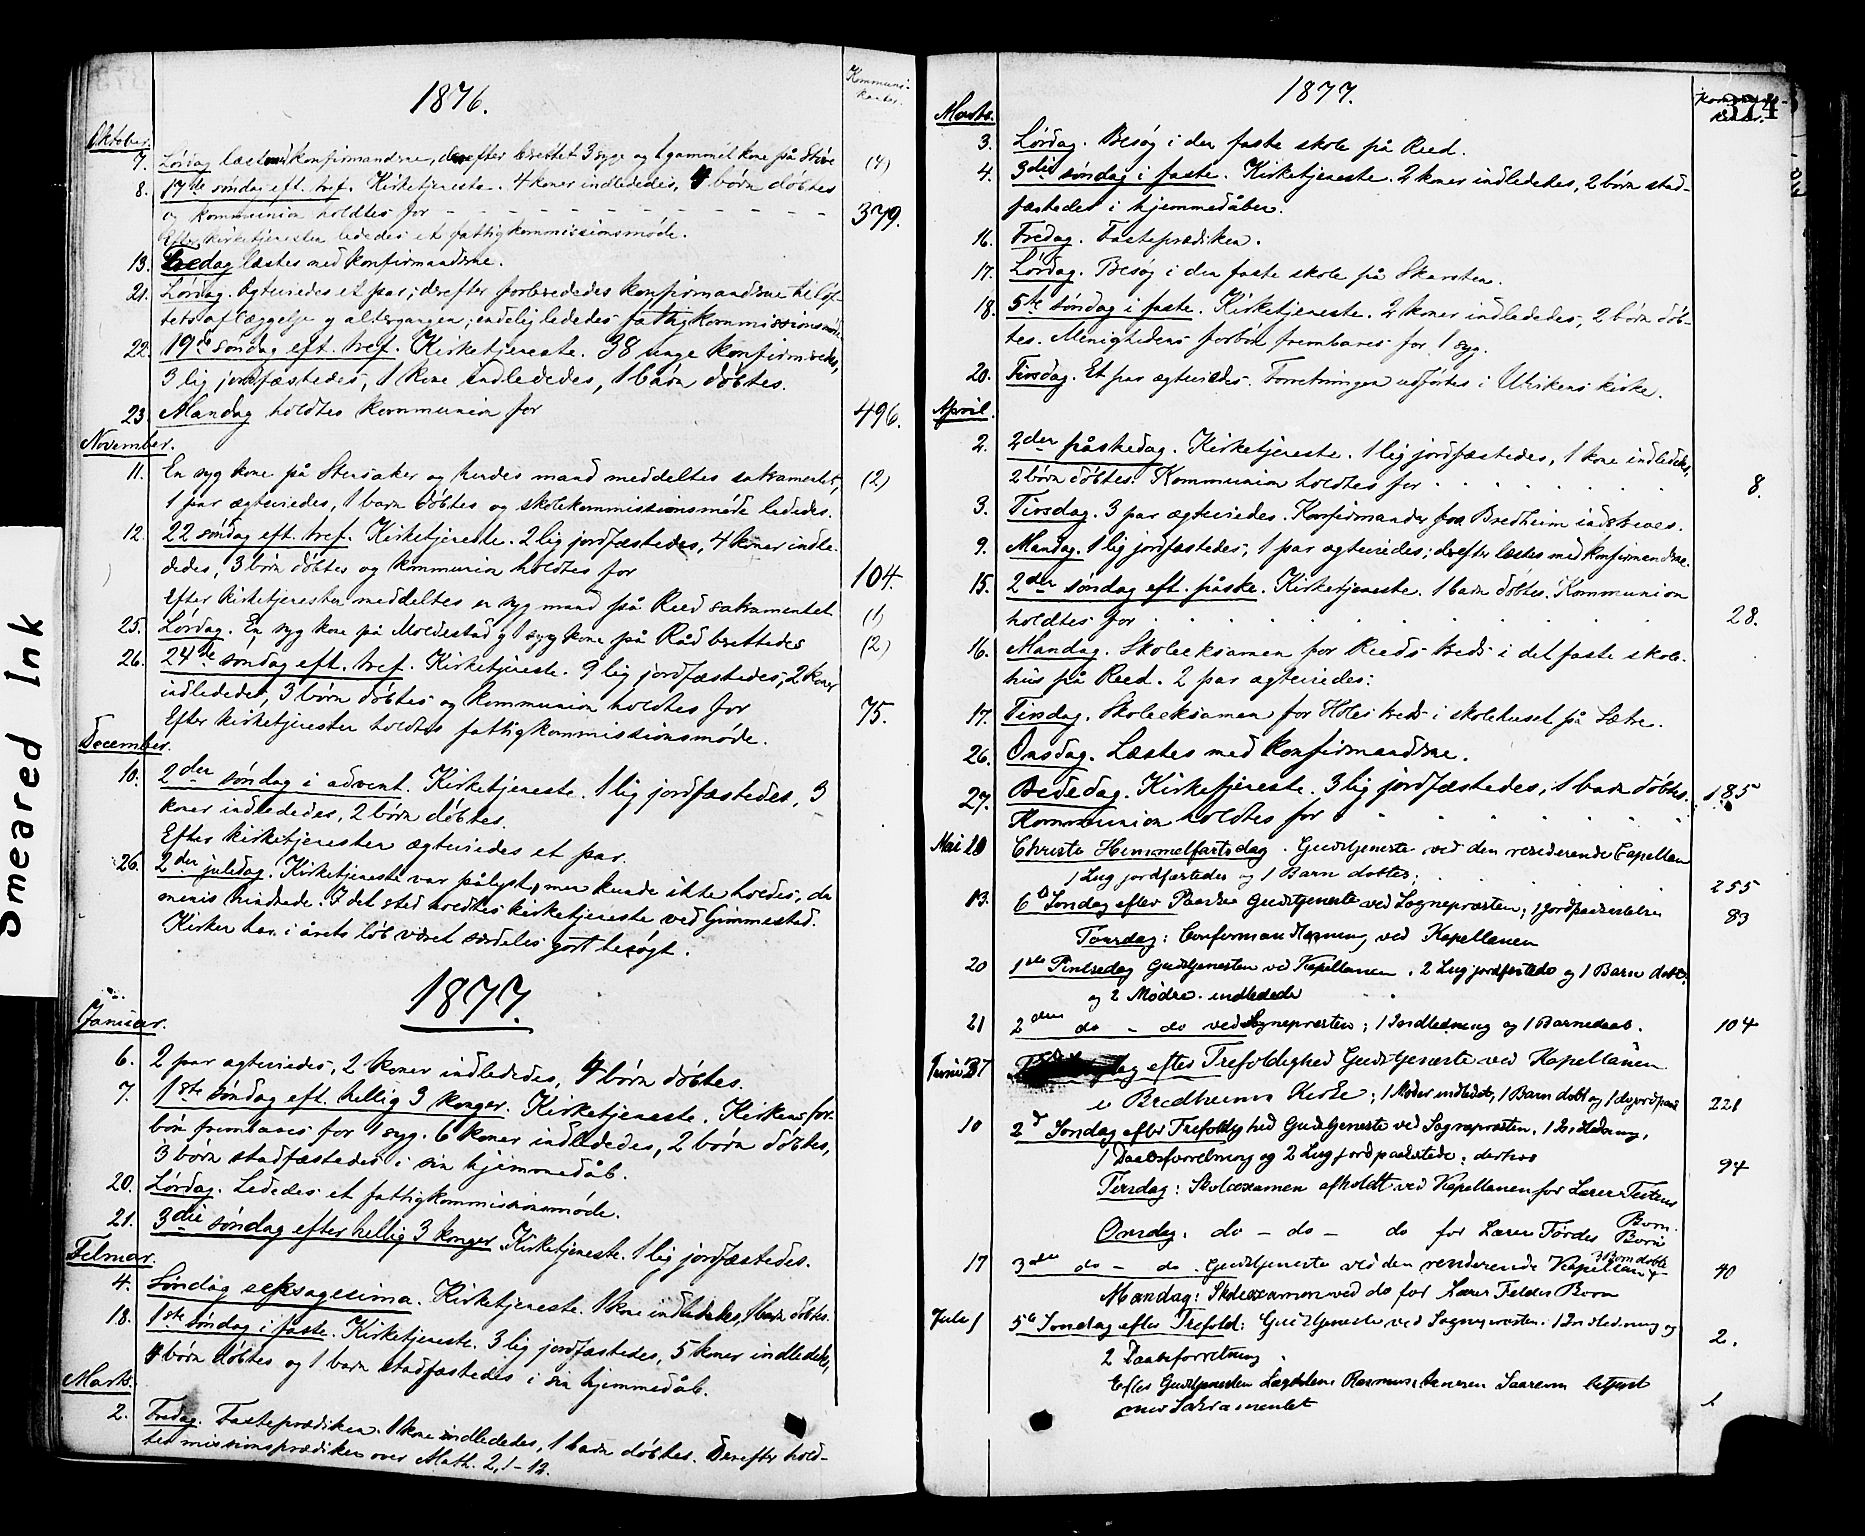 Smeared Ink
1876.
Kommuni-
kanter.
Oktober.
7. Lørdag læst med konfirmandrne, derefter berettet 3 syge og 1 gammel kone på (4)
8. 17de søndag eft. tref. Kirketjeneste. 4 koner indlededes, 4 børn døbtes
og kommunion holdtes for 379.
Efter kirketjenesten lededes et fattigkommissionsmøde.
13. Fredag læstes med konfirmandrne.
21. Lørdag. Ægteviedes et par; derefter forberededes konfirmandrne til løf-
tets aflæggelse og altergangen; endelig lededes fattigkommissionsmøde
22. 19de søndag eft. tref. Kirketjeneste. 38 unge konfirmeredes,
3 lig jordfæstedes, 1 kone indlededes, 1 barn døbtes.
23. Mandag holdtes kommunion for 496.
November.
11. En syg kone på Stersaker og hendes mand meddeltes sakramentet, (2)
1 par ægteviedes, 1 barn døbtes og skolekommissionsmøde lededes.
12. 22 søndag eft. tref. Kirketjeneste. 2 lig jordfæstedes, 4 koner indle-
dedes, 3 børn døbtes og kommunion holdtes for 104.
Efter kirketjenesten meddeltes en syg mand på Reed sakramentet (1)
25. Lørdag. En syg kone på Moldestad og 1 syg kone på Råd berettedes (2)
26. 24de søndag eft. tref. Kirketjeneste. 9 lig jordfæstedes, 2 koner
indlededes, 3 børn døbtes og kommunion holdtes for 75.
Efter kirketjenesten holdtes fattigkommissionsmøde.
December.
10. 2den søndag i advent. Kirketjeneste. 1 lig jordfæstedes, 3
koner indlededes, 2 børn døbtes.
Efter kirketjenesten ægteviedes et par.
26. 2den juledag. Kirketjeneste var pålyst, men kunde ikke holdes, da
menis hindrede. I det sted holdtes kirketjeneste ved Gimmestad.
Kirken har i årets løb været særdeles godt besøgt.
1877.
Januar.
6. 2 par ægteviedes, 2 koner indlededes, 4 børn døbtes.
7. 1ste søndag eft. hellig 3 konger. Kirketjeneste. Kirkens for-
bøn frembares for 1 syg. 6 koner indlededes, 2 børn døbtes,
3 børn stadfæstedes i sin hjemmedåb.
20. Lørdag. Lededes et fattigkommissionsmøde.
21. 3die søndag efter hellig 3 konger. Kirketjeneste. 1 lig jordfæstedes.
Februar.
4. Søndag seksagesima. Kirketjeneste. 1 kone indlededes, 1 barn døbtes.
18. 1ste søndag i faste. Kirketjeneste. 3 lig jordfæstedes, 5 koner indlededes,
4 børn døbtes og 1 barn stadfæstedes i sin hjemmedåb.
Marts.
2. Fredag. Fasteprædiken. 1 kone indlededes, 1 barn døbtes. Derefter hold-
tes missionsprædiken over Math. 2, 1-12.
1877.
374
Marts.
3. Lørdag. Besøg i den faste skole på Reed.
4. 3die søndag i faste. Kirketjeneste. 2 koner indlededes, 2 børn stad-
fæstedes i hjemmedåben.
16. Fredag. Fasteprædiken.
17. Lørdag. Besøg i den faste skole på Skarsten.
18. 5te søndag i faste. Kirketjeneste. 2 koner indlededes, 2 børn døb-
tes. Menighedens forbøn frembares for 1 syg.
20. Tirsdag. Et par ægteviedes. Forretningen udførtes i Utvikens kirke.
April.
2. 2den påskedag. Kirketjeneste. 1 lig jordfæstedes, 1 kone indlededes,
2 børn døbtes. Kommunion holdtes for 8.
3. Tirsdag. 3 par ægteviedes. Konfirmander fra Bredheim indskreves.
9. Mandag. 1 lig jordfæstedes, 1 par ægteviedes; derefter læstes med konfirmandrne.
15. 2den søndag eft. påske. Kirketjeneste. 1 barn døbtes. Kommunion
holdtes for 28.
16. Mandag. Skoleeksamen for Reeds kreds i det faste skole-
hus på Reed. 2 par ægteviedes.
17. Tirsdag. Skoleeksamen for Holes kreds i skolehuset på Sætre.
26. Onsdag. Læstes med konfirmandrne.
27. Bededag. Kirketjeneste. 3 lig jordfæstedes, 1 barn døbtes.
Kommunion holdtes for 185
Mai 10 Christi Himmelfartsdag. Gudstjeneste ved den residerende Capellan
1 Lig jordfæstedes og 1 Barn døbtes; 255
13. 6te Søndag efter Paaske Gudstjeneste ved Sognepræsten; 1 Jordpaakastelse 83
Torsdag: Confirmandlæsning ved Kapellanen
20 1ste Pintsedag Gudstjenesten ved Kapellanen. 2 Lig jordfæstede og 1 Barn døbt
og 2 Mødre indledede
21 2den do - do ved Sognepræsten; 1 Indledning og 1 Barnedaab. 104
Juni dag efter Trefoldighed Gudstjeneste ved Kapellanen
i Bredheims Kirke; 1 Moder indledet, 1 Barn døbt og 1 do jordpaak 221
10 2d Søndag efter Trefoldighed Gudstjeneste ved Sognepræsten. 1 Indledning,
1 Daabsforretning og 2 Lig jordpaakastede; derhos 94
Tirsdag: Skoleexamen afholdt ved Kapellanen for Lærer
Børn.
Onsdag: do - do - do for Lærer Førdes Børn
17 3die do - do. Gudstjeneste ved den residerende Kapellan 3 Børn døbte 40
Mandag: Skoleexamen ved do for Lærer Børn
Juli 1 5te Søndag efter Trefold: Gudstjeneste ved Sognepræsten. 1 Indledning og
2 Daabsforretning. 2.
Efter Gudstjenesten Rasmus betjent
med Sakramentet 1